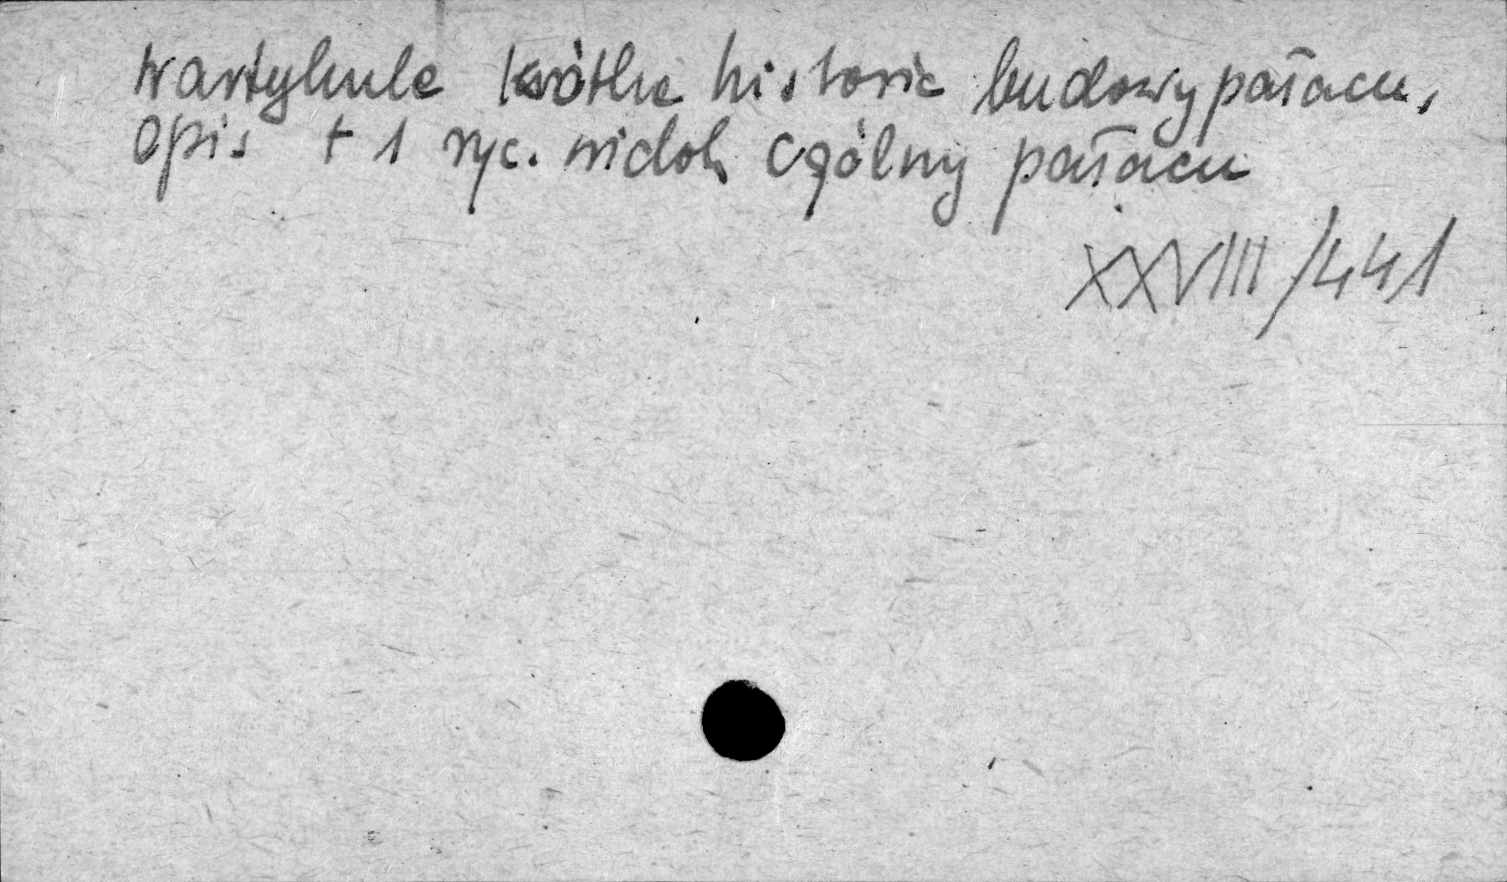 W artykule krótka historia budowy pałacu,
opis + 1 ryc. widok ogólny pałacu
XXVIII/441